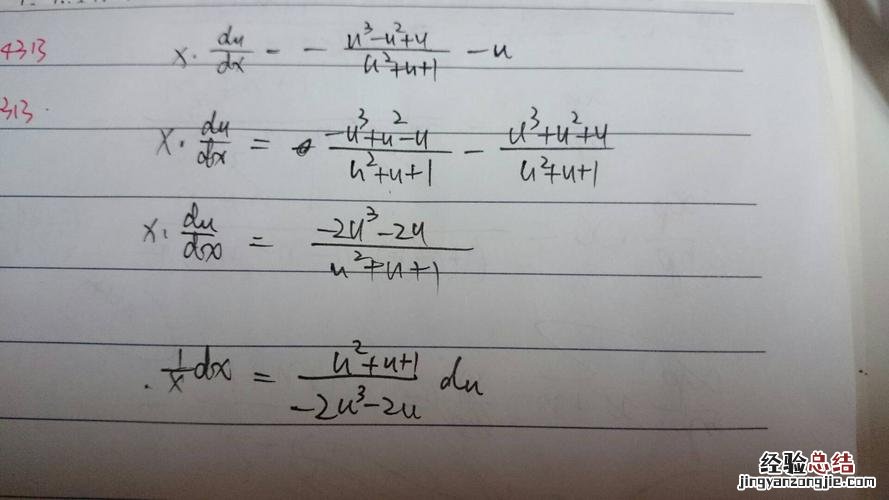 4313
x · du/dx - - (u³-u²+u)/(u²+u+1) - u
313.
x · du/dx = (-u³+u²-u)/(u²+u+1) - (u³+u²+u)/(u²+u+1)
x · du/dx = (-2u³-2u)/(u²+u+1)
. 1/x dx = (u²+u+1)/(-2u³-2u) du
经验总结
jingyanzongjie.com